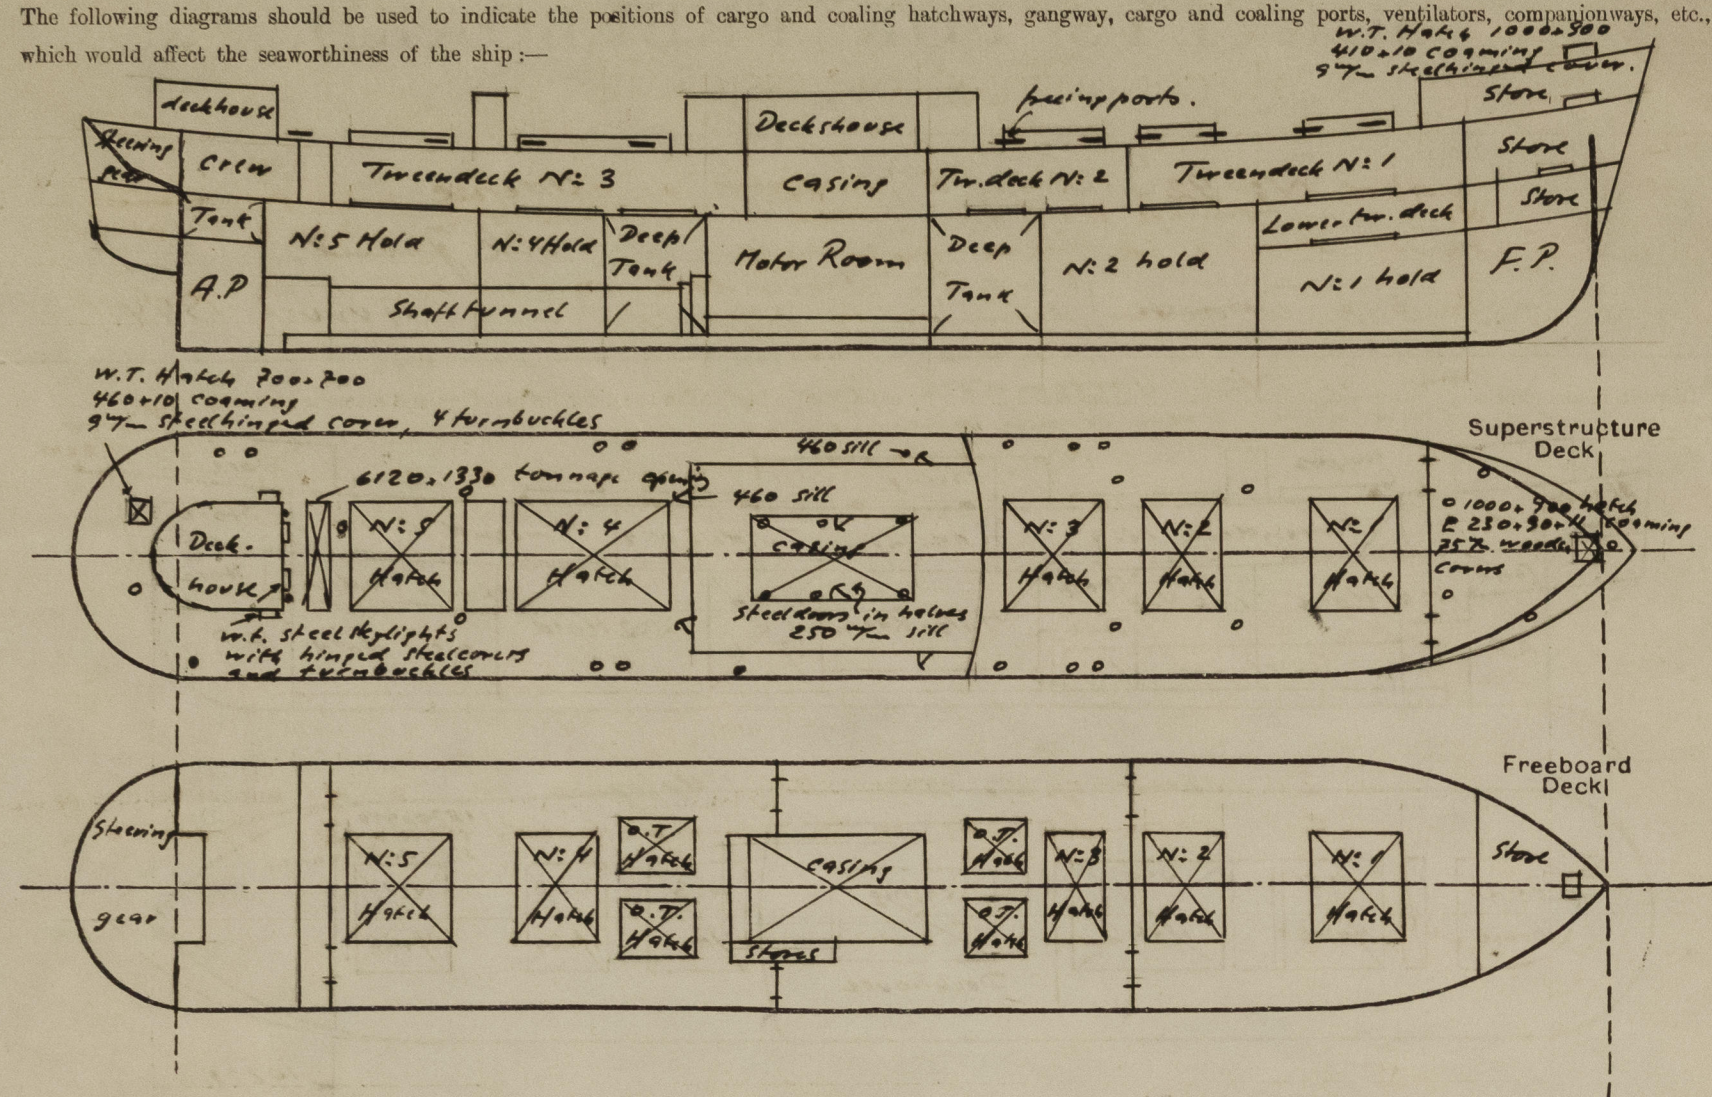 The following diagrams should be used to indicate the positions of cargo and coaling hatchways, gangway, cargo and coaling ports, ventilators, companionways, etc.,
which would affect the seaworthiness of the ship :—
W.T. Hatch 1000×900
410×10 coaming
9 m/m steelhinged cover.
deckhouse
Deckshouse
freeingports.
Store
Steering
gear
Crew
Tweendeck N:3
Casing
Tw.deck N:2
Tweendeck N:1
Store
Store
Tank
N:5 Hold
N:4 Hold
Deep
Tank
Motor Room
Deep
Tank
N:2 hold
Lower tw. deck
N:1 hold
F.P.
A.P
Shafttunnel
W.T. Hatch 700×700
460×10 coaming
9 m/m steelhinged cover, 4 turnbuckles
Superstructure
Deck
460 sill
6120×1330 tonnage opening
460 sill
Deck-
house
N:5
Hatch
N:4
Hatch
casing
N:3
Hatch
N:2
Hatch
N:1
Hatch
1000×900 hatch
230×90×11 coaming
75 m/m wooden
covers
Steeldoors in halves
250 m/m sill
w.t. steel skylights
with hinged steelcovers
and turnbuckles
Freeboard
Deck
Steering
gear
N:5
Hatch
N:4
Hatch
O.T.
Hatch
O.T.
Hatch
casing
Stores
O.T.
Hatch
O.T.
Hatch
N:3
Hatch
N:2
Hatch
N:1
Hatch
Store